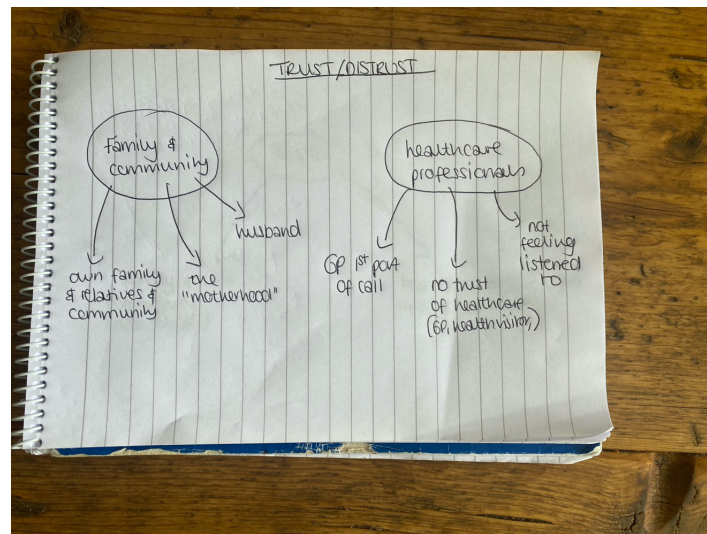 TRUST/DISTRUST
Family &
community
husband
own family
& relatives &
community
the
"motherhood"
healthcare
professionals
GP 1st port
of call
no trust
of healthcare
(GP, healthvisitor,)
not
feeling
listened
to